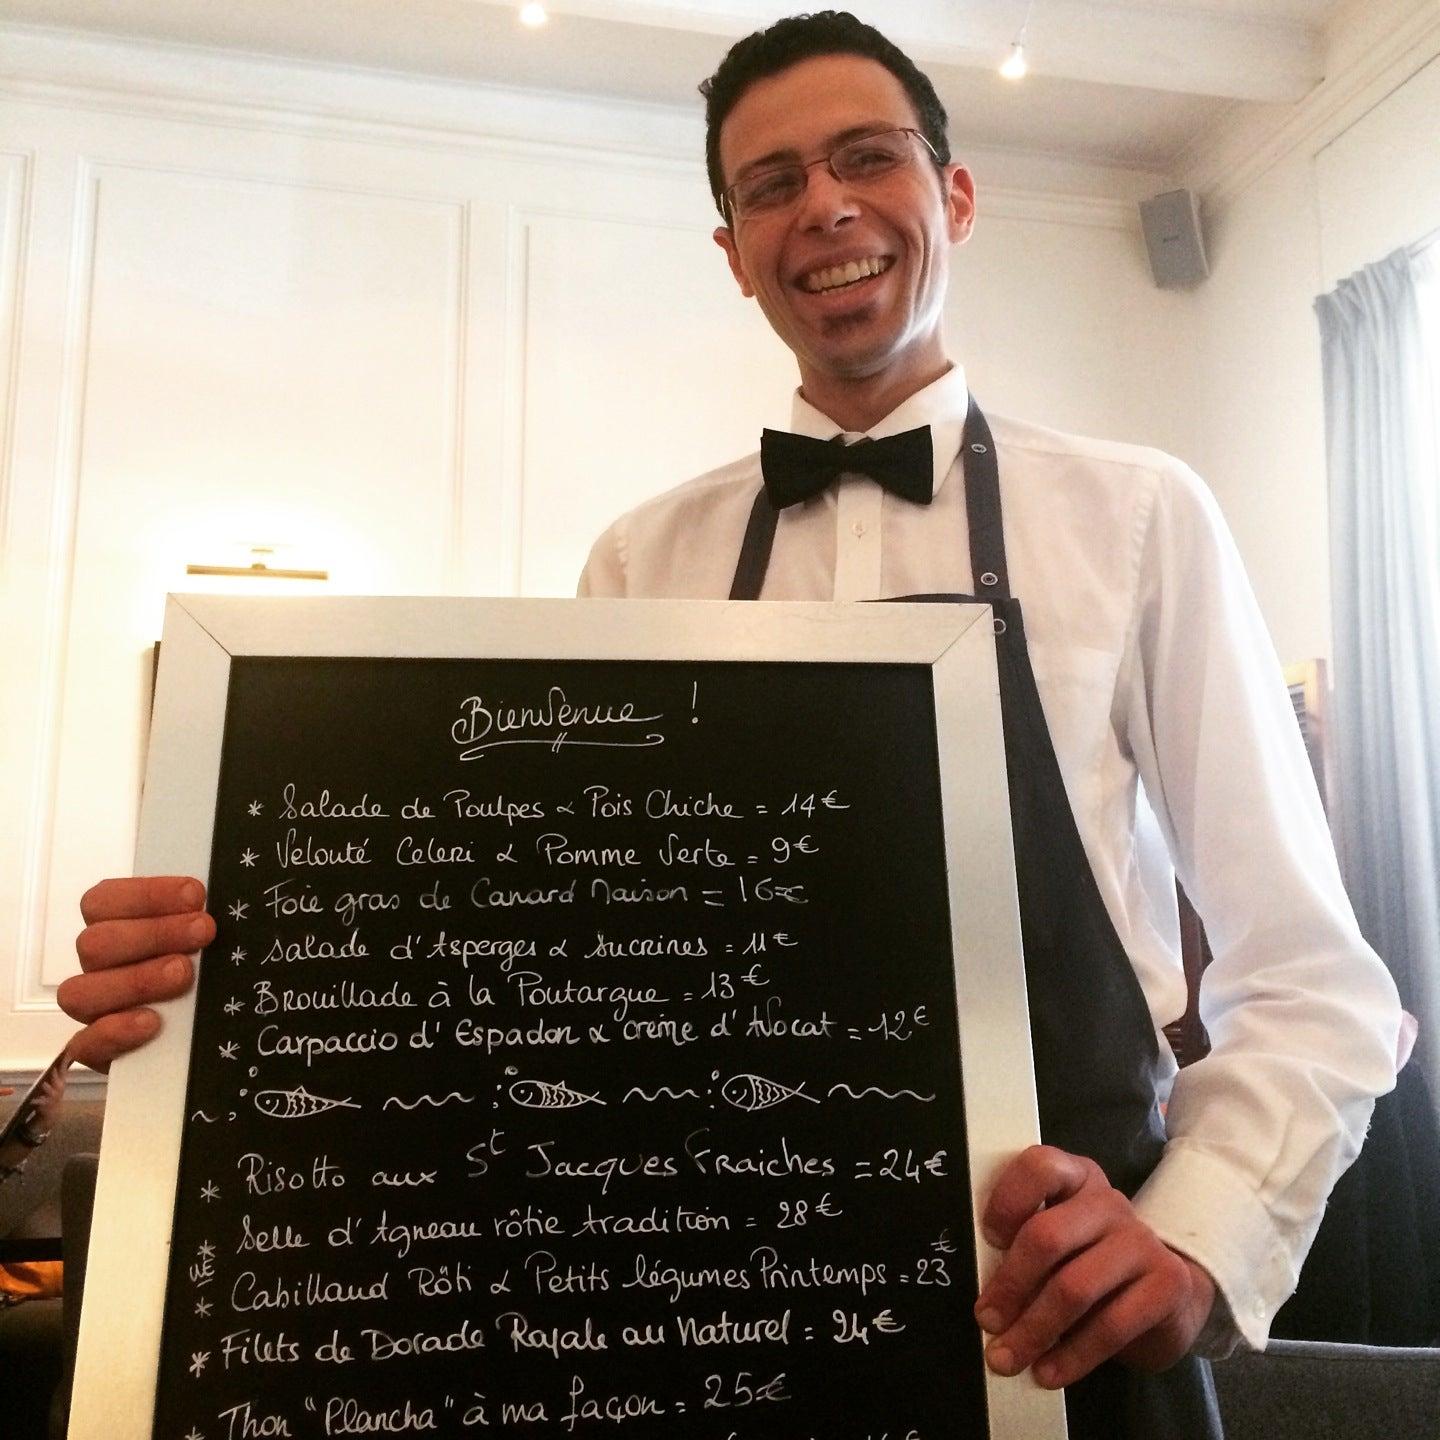 Bienvenue !
* Salade de Poulpes & Pois Chiche = 14€
* Velouté Celeri & Pomme Verte = 9€
* Foie gras de Canard Maison = 16€
* Salade d'Asperges & Sucrines = 11€
* Brouillade à la Poutargue = 13€
* Carpaccio d'Espadon & crème d'Avocat = 12€
* Risotto aux St Jacques Fraiches = 24€
* Selle d'Agneau rôtie tradition = 28€
* Cabillaud Rôti & Petits légumes Printemps = 23€
* Filets de Dorade Royale au Naturel = 24€
* Thon "Plancha" à ma façon = 25€